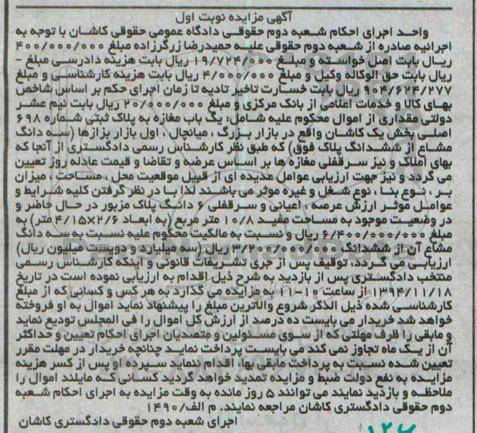 آگهی مزایده نوبت اول
واحد اجرای احکام شعبه دوم حقوقی دادگاه عمومی حقوقی کاشان با توجه به
اجرائیه صادره از شعبه دوم حقوقی علیه حمیدرضا زرگرزاده مبلغ ۴۰۰/۰۰۰/۰۰۰
ریال بابت اصل خواسته و مبلغ ۱۹/۷۲۴/۰۰۰ ریال بابت هزینه دادرسی مبلغ -
ریال بابت حق الوکاله وکیل و مبلغ ۴/۰۰۰/۰۰۰ ریال بابت هزینه کارشناسی و مبلغ
۱۰۴/۶۲۴/۲۷۷ ریال بابت خسارت تاخیر تادیه تا زمان اجرای حکم بر اساس شاخص
بهای کالا و خدمات اعلامی از بانک مرکزی و مبلغ ۲۰/۰۰۰/۰۰۰ ریال بابت نیم عشر
دولتی مقداری از اموال محکوم علیه شامل: یک باب مغازه به پلاک ثبتی شماره ۶۹۸
اصلی بخش یک کاشان واقع در بازار بزرگ ، میانچال ، اول بازار بزازها (سه دانگ
مشاع از ششدانگ پلاک فوق) که طبق نظر کارشناس رسمی دادگستری از آنجا که
بهای املاک و نیز سرقفلی مغازه ها بر اساس عرضه و تقاضا و قیمت عادله روز تعیین
می گردد و نیز جهت ارزیابی عوامل عدیده ای از قبیل موقعیت محل ، مساحت ، میزان
بر ، نوع بنا ، نوع شغل و غیره موثر می باشند لذا با در نظر گرفتن کلیه شرایط و
عوامل موثر ارزش عرصه ، اعیانی و سرقفلی ۶ دانگ پلاک مزبور در حال حاضر و
در وضعیت موجود به مساحت مفید ۱۰/۸ متر مربع (به ابعاد ۲/۶×۴/۱۵ متر) به
مبلغ ۶/۴۰۰/۰۰۰/۰۰۰ ریال و نسبت به مالکیت محکوم علیه نسبت به سه دانگ
مشاع آن از ششدانگ ۳/۲۰۰/۰۰۰/۰۰۰ ریال (سه میلیارد و دویست میلیون ریال)
ارزیابی می گردد، توقیف پس از جری تشریفات قانونی و اینکه کارشناس رسمی
منتخب دادگستری پس از بازدید به شرح ذیل اقدام به ارزیابی نموده است در تاریخ
۱۳۹۴/۱۱/۱۸ از ساعت ۱۰-۱۱ به مزایده می گذارد به هر کس و کسانی که از مبلغ
کارشناسی شده ذیل الذکر شروع والاترین مبلغ را پیشنهاد نماید اموال به او فروخته
خواهد شد خریدار می بایست ده درصد از ارزش کل اموال را فی المجلس تودیع نماید
و مابقی را ظرف مهلتی که از سوی مسئولین و متصدیان اجرای احکام تعیین و حداکثر
آن از یک ماه تجاوز نمی کند می بایست پرداخت نماید چنانچه خریدار در مهلت مقرر
تعیین شده نسبت به پرداخت مابقی بهاء اقدام ننماید سپرده او پس از کسر هزینه
مزایده به نفع دولت ضبط و مزایده تمدید خواهد گردید کسانی که مایلند اموال را
ملاحظه و بازدید نمایند می توانند ۵ روز مانده به وقت مزایده به اجرای احکام شعبه
دوم حقوقی دادگستری کاشان مراجعه نمایند. م الف/۱۴۹۰
اجرای شعبه دوم حقوقی دادگستری کاشان